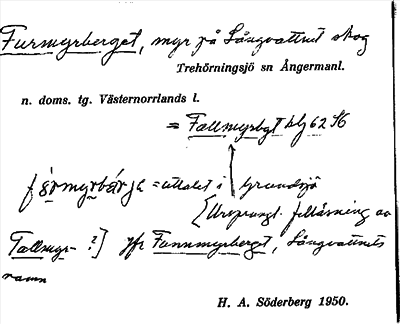 Furmyrberget, myr på Långvattnets skog
Trehörningsjö sn Ångermanl.
n. doms. tg. Västernorrlands l.
= Tallmyrbgt blj 62 S6
= uttalet i Grundsjö
[Ursprungl. felläsning av
Tallmyr- ?] jfr Funnmyrberget, Långvattnets
namn
H. A. Söderberg 1950.